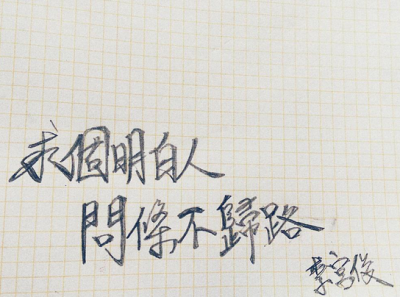 求個明白人
問條不歸路
李宮俊